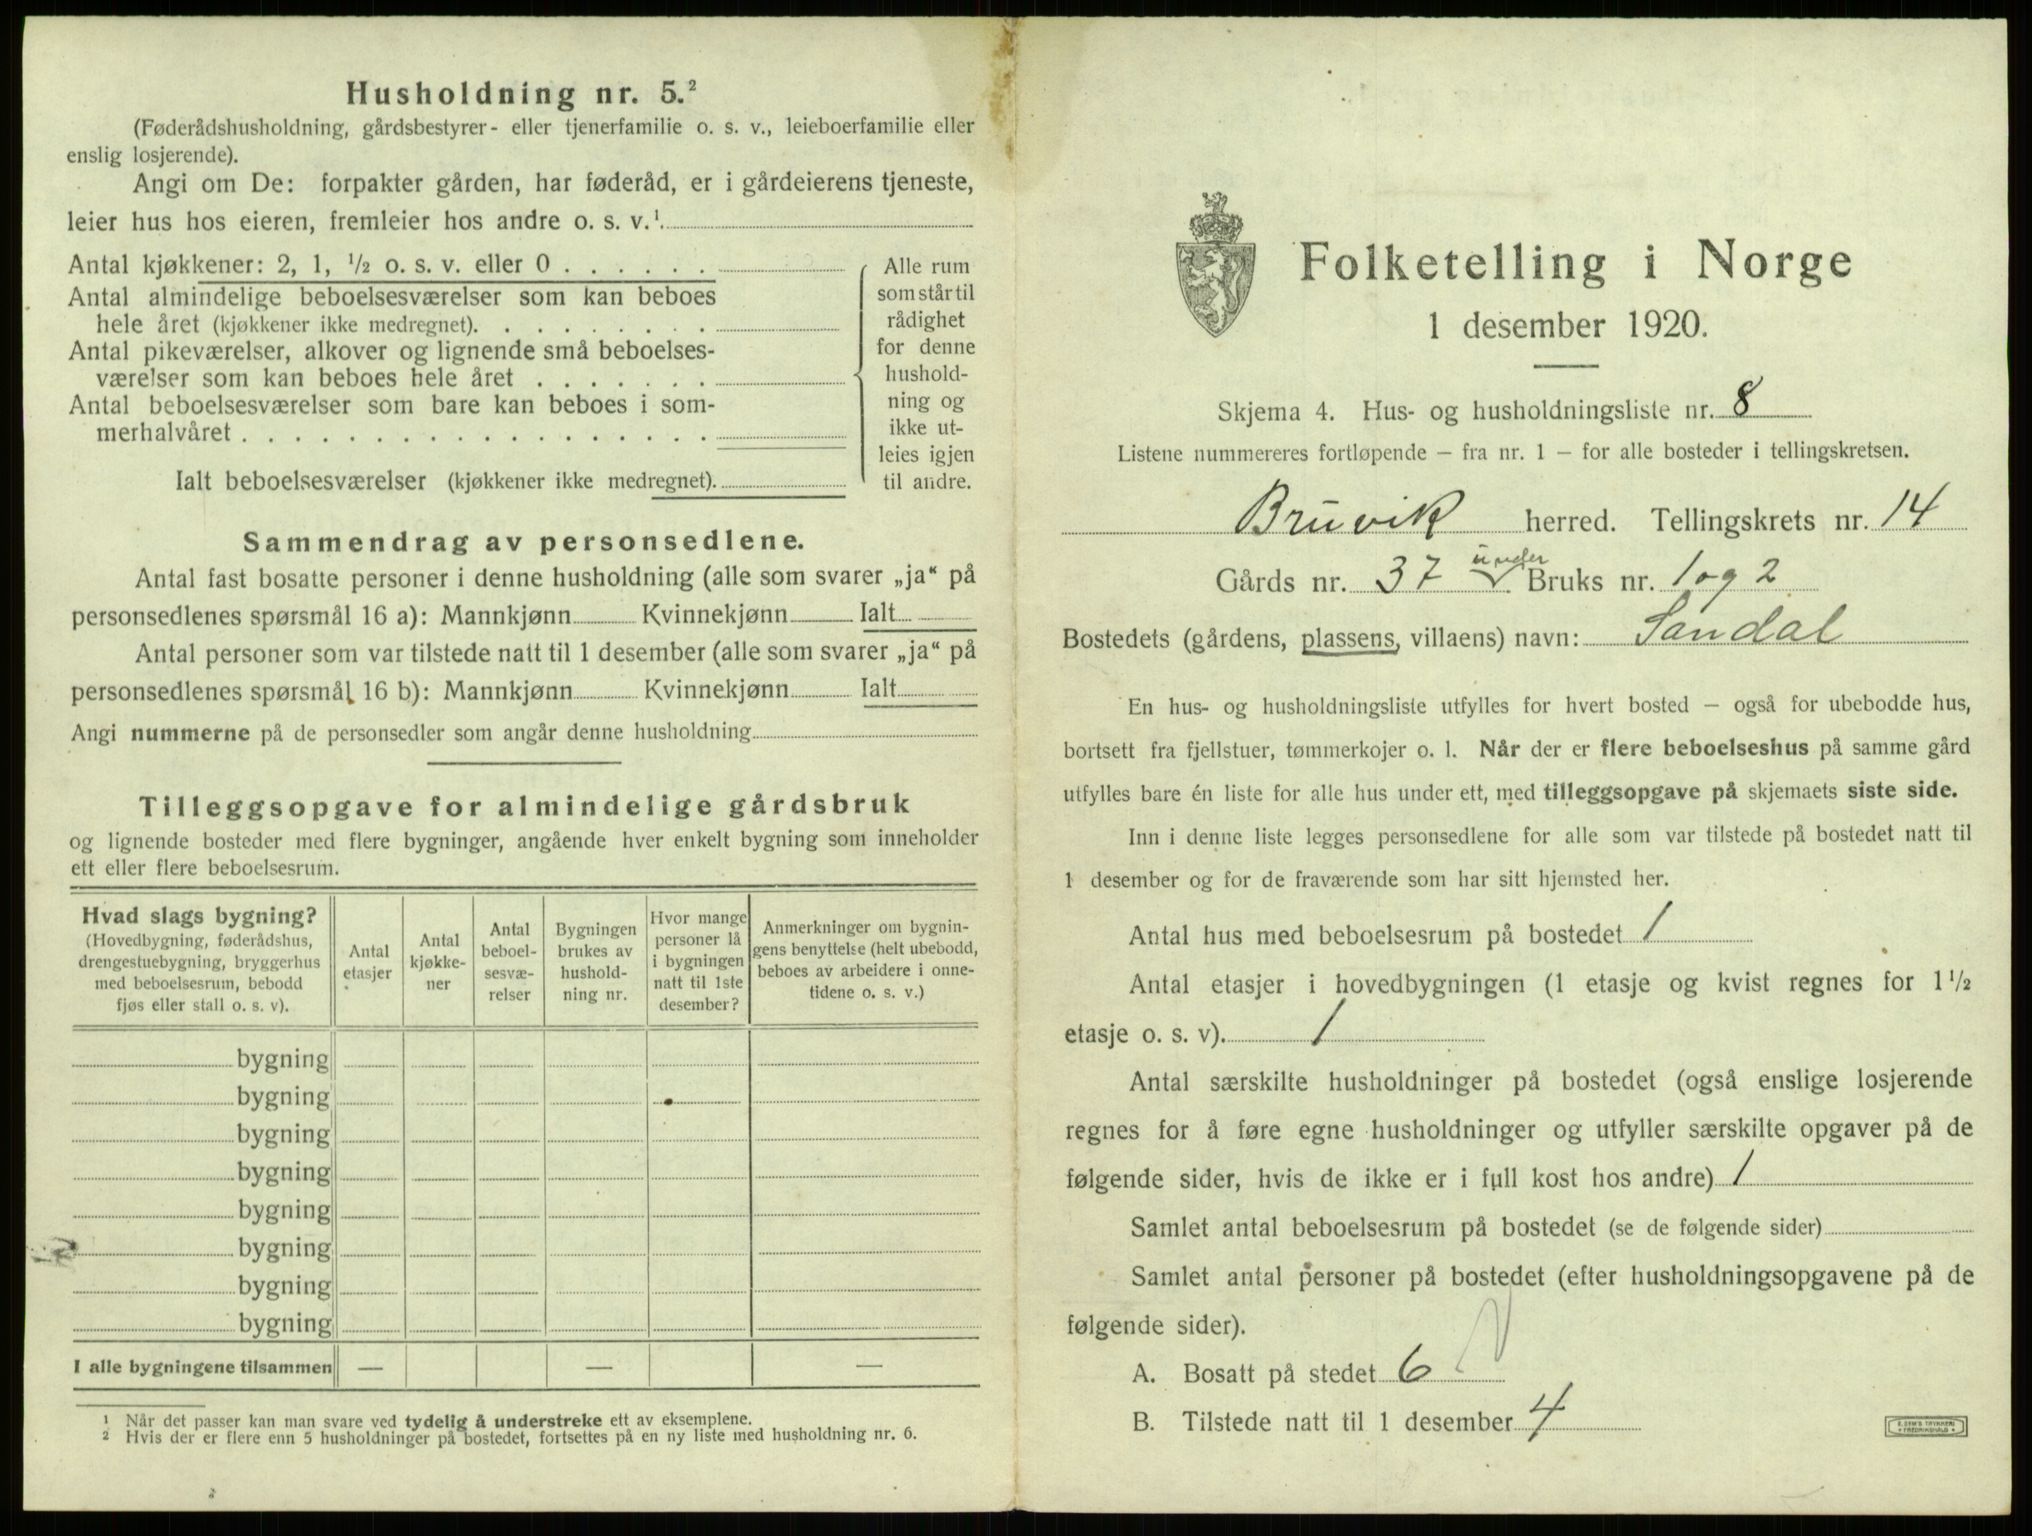 Husholdning nr. 5.²
(Føderådshusholdning, gårdsbestyrer- eller tjenerfamilie o. s. v., leieboerfamilie eller
enslig losjerende).
Angi om De: forpakter gården, har føderåd, er i gårdeierens tjeneste,
leier hus hos eieren, fremleier hos andre o. s. v.¹
Antal kjøkkener: 2, 1, ½ o. s. v. eller 0 . . . . . .
Antal almindelige beboelsesværelser som kan beboes
hele året (kjøkkener ikke medregnet). . . . . . . . .
Antal pikeværelser, alkover og lignende små beboelses-
værelser som kan beboes hele året . . . . . . .
Antal beboelsesværelser som bare kan beboes i som-
merhalvåret . . . . . . . . . . . . . . . . . .
Ialt beboelsesværelser (kjøkkener ikke medregnet).
Alle rum
som står til
rådighet
for denne
hushold-
ning og
ikke ut-
leies igjen
til andre.
Sammendrag av personsedlene.
Antal fast bosatte personer i denne husholdning (alle som svarer „ja“ på
personsedlenes spørsmål 16 a): Mannkjønn Kvinnekjønn Ialt
Antal personer som var tilstede natt til 1 desember (alle som svarer „ja“ på
personsedlenes spørsmål 16 b): Mannkjønn Kvinnekjønn Ialt
Angi nummerne på de personsedler som angår denne husholdning
Tilleggsopgave for almindelige gårdsbruk
og lignende bosteder med flere bygninger, angående hver enkelt bygning som inneholder
ett eller flere beboelsesrum.
Hvad slags bygning?
(Hovedbygning, føderådshus,
drengestuebygning, bryggerhus
med beboelsesrum, bebodd
fjøs eller stall o. s. v).
Antal
etasjer
Antal
kjøkke-
ner
Antal
beboel-
sesvæ-
relser
Bygningen
brukes av
hushold-
ning nr.
Hvor mange
personer lå
i bygningen
natt til 1ste
desember?
Anmerkninger om bygnin-
gens benyttelse (helt ubebodd,
beboes av arbeidere i onne-
tidene o. s. v.)
bygning
bygning
bygning
bygning
bygning
bygning
bygning
bygning
I alle bygningene tilsammen — — —
¹ Når det passer kan man svare ved tydelig å understreke ett av eksemplene.
² Hvis der er flere enn 5 husholdninger på bostedet, fortsettes på en ny liste med husholdning nr. 6.
Folketelling i Norge
1 desember 1920.
Skjema 4. Hus- og husholdningsliste nr. 8
Listene nummereres fortløpende – fra nr. 1 – for alle bosteder i tellingskretsen.
Bruvik herred. Tellingskrets nr. 14
Gårds nr. 37 under Bruks nr. 1 og 2
Bostedets (gårdens, plassens, villaens) navn: Sandal
En hus- og husholdningsliste utfylles for hvert bosted – også for ubebodde hus,
bortsett fra fjellstuer, tømmerkojer o. l. Når der er flere beboelseshus på samme gård
utfylles bare én liste for alle hus under ett, med tilleggsopgave på skjemaets siste side.
Inn i denne liste legges personsedlene for alle som var tilstede på bostedet natt til
1 desember og for de fraværende som har sitt hjemsted her.
Antal hus med beboelsesrum på bostedet 1
Antal etasjer i hovedbygningen (1 etasje og kvist regnes for 1½
etasje o. s. v). 1
Antal særskilte husholdninger på bostedet (også enslige losjerende
regnes for å føre egne husholdninger og utfyller særskilte opgaver på de
følgende sider, hvis de ikke er i full kost hos andre) 1
Samlet antal beboelsesrum på bostedet (se de følgende sider)
Samlet antal personer på bostedet (efter husholdningsopgavene på de
følgende sider).
A. Bosatt på stedet 6
B. Tilstede natt til 1 desember 4
E. SEM'S TRYKKERI
FREDRIKSHALD